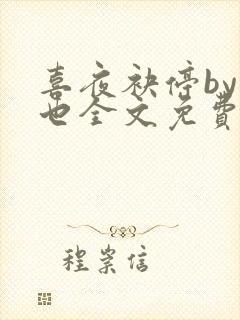 喜夜袂停by
也全文免費
程崇信